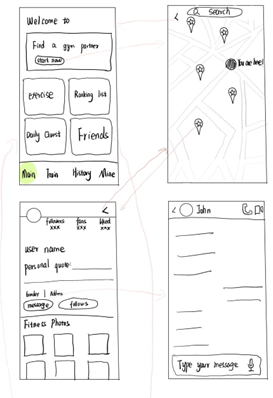 Welcome to
Find a gym partner
start now
exercise
Ranking list
Daily
Friends
Main Train History Mine
search
You are here!
followers fans liked
xxx xxx xxx
user name
personal quote:
message
follows
Fitness Photos
John
Type your message